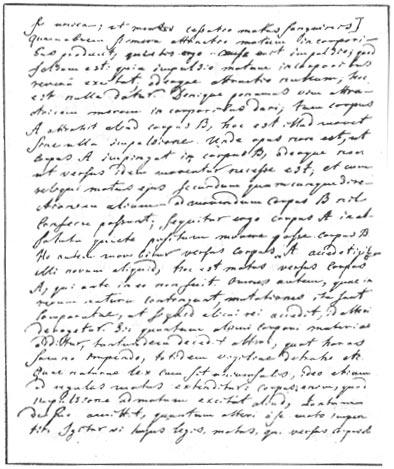 Quamobrem si mera attractio motum in corpori-
bus producit, ergo erit impulsio; quod
falsum est: quia impulsio motum in corporibus
revera excitat, adeoque attractio nullum, hoc
est nulla datur. Denique ponamus vim attra-
ctricem meram in corporibus dari; tum corpus
A attrahit aliud corpus B, hoc est illud movet
sine ulla impulsione. Unde opus non est, ut
corpus A impingat in corpus B, adeoque non
ut versus idem moveatur necesse est; et cum
reliqui motus ejus secundum quamcunque dire-
ctionem alium ad movendum corpus B nil
conferre possunt; sequitur ergo corpus A in ab-
soluta quiete positum movere posse corpus B
Hoc autem movebitur versus corpus A accedet igitur
illi novum aliquid, hoc est motus versus corpus
A, qui ante in eo non fuit. Omnes autem, quae in
rerum natura contingunt mutationes ita sunt
comparatae, ut si quid alicui rei accedit, id alteri
derogetur. Sic quantum alicui corpori materiae
additur, tantundem decedit alteri, quot horas
somno impendo, totidem vigiliae detraho etc.
Quae naturae lex cum sit universalis, ideo etiam
ad regulas motus extenditur: corpus enim, quod
impulsione ad motum excitat aliud, tantum
de suo amittit, quantum alteri a se moto imper-
tit. Igitur vi hujus legis, motus, qui versus